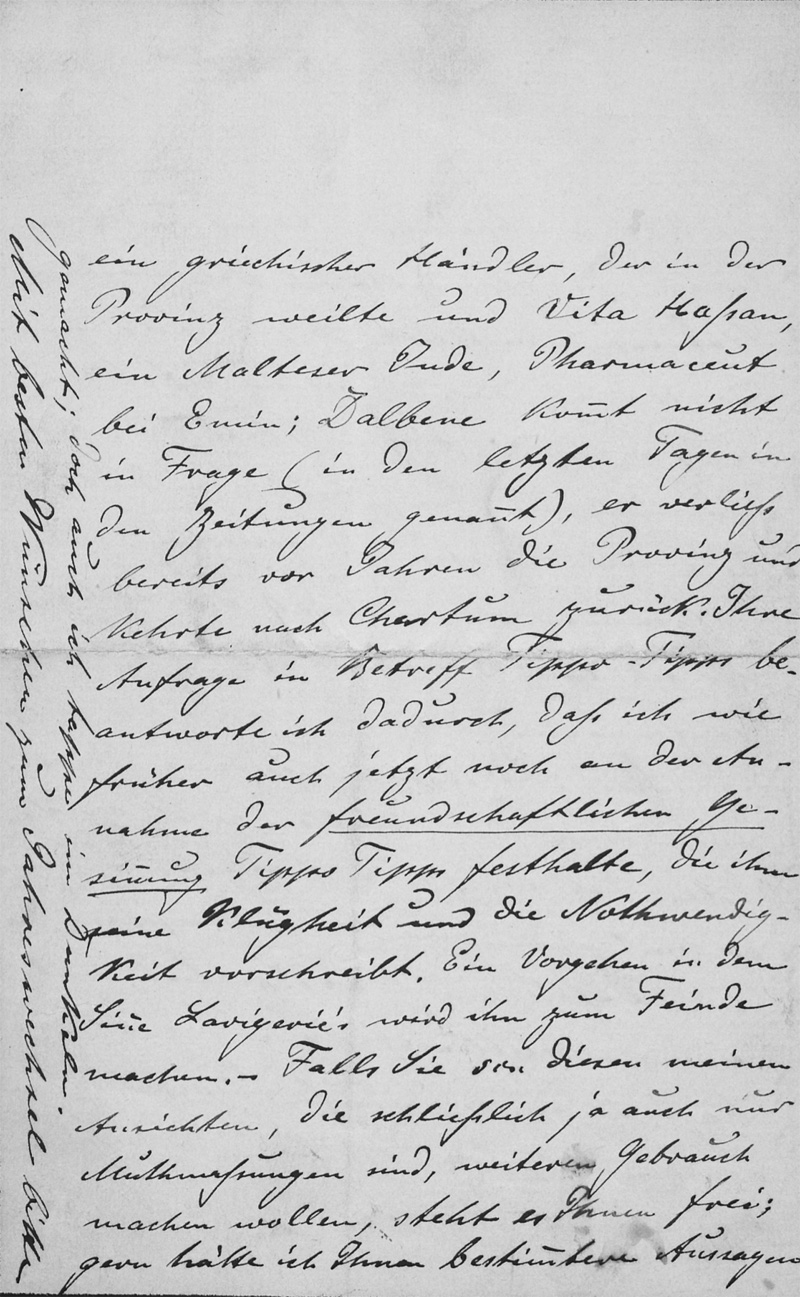 ein griechischer Händler, der in der
Provinz weilte und Vita Hassan,
ein Malteser Jude, Pharmaceut
bei Emin; Dalbene kom̅t nicht
in Frage (in den letzten Tagen in
den Zeitungen genan̅t), er verliess
bereits vor Jahren die Provinz und
kehrte nach Chartum zurück. Ihre
Anfrage in Betreff Tippo-Tipps be-
antworte ich dadurch, dass ich wie
früher auch jetzt noch an der An-
nahme der freundschaftlichen Ge-
sin̅ung Tippo Tipps festhalte, die ihm
seine Klugheit und die Nothwendig-
keit vorschreibt. Ein Vorgehen in dem
Sin̅e Lavigerie's wird ihn zum Feinde
machen. – Falls Sie von diesen meinen
Ansichten, die schliesslich ja auch nur
Muthmassungen sind, weiteren Gebrauch
machen wollen, steht es Ihnen frei;
gern hätte ich Ihnen bestim̅tere Aussagen
gemacht; doch auch ich tappe im Dunkeln.
Mit besten Wünschen zum Jahreswechsel bitte